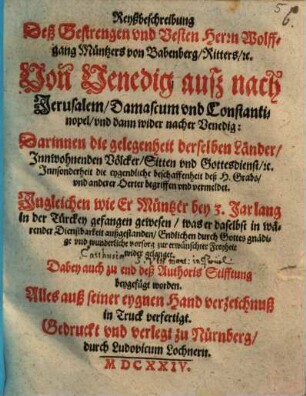 Reyßbeschreibung
Deß Gestrengen vnd Vesten Herrn Wolff-
gang Müntzers von Babenberg / Ritters / ꝛc.
Von Venedig auß nach
Jerusalem / Damascum vnd Constanti-
nopel / vnd dann wider nacher Venedig:
Darinnen die gelegenheit derselben Länder /
Innwohnenden Völcker / Sitten vnd Gottesdienst / ꝛc.
Innsonderheit die eygendliche beschaffenheit deß H. Grabs /
vnd anderer Oerter begriffen vnd vermeldet.
Ingleichen wie Er Müntzer bey 3. Jar lang
in der Türckey gefangen gewesen / was er daselbst in wä-
render Dienstbarkeit außgestanden / Endlichen durch Gottes gnädi-
ge vnd wunderliche vorsorg zur erwünschter Freyheit
wider gelanget.
Dabey auch zu end deß Authoris Stifftung
beygefügt worden.
Alles auß seiner eygnen Hand verzeichnuß
in Truck verfertigt.
Gedruckt vnd verlegt zu Nürnberg /
durch Ludovicum Lochnern.
MDCXXIV.